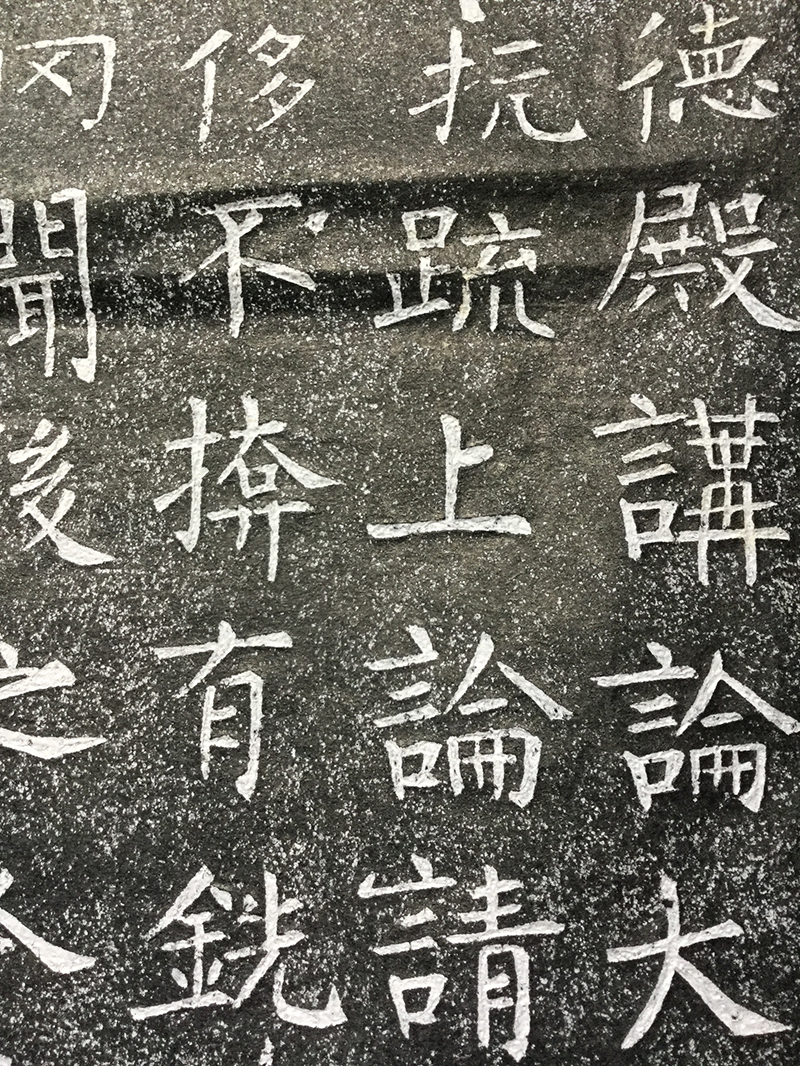 德殿講論大
抗疏上論請
侈不揜有銑
聞後之